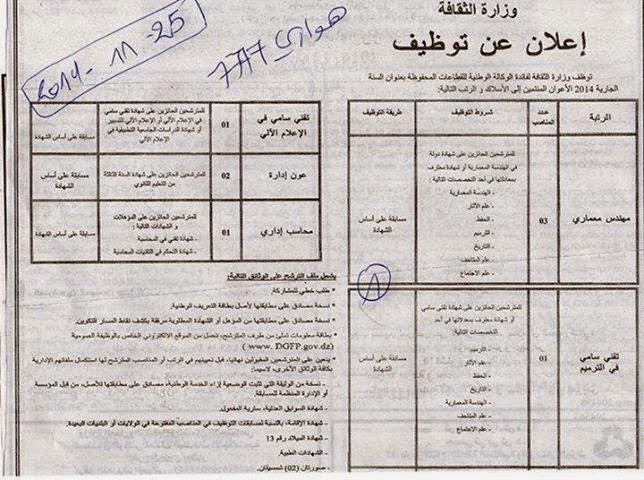 وزارة الثقافة
إعلان عن توظيف
توظف وزارة الثقافة لفائدة الوكالة الوطنية للقطاعات المحفوظة بعنوان السنة
الجارية 2014 الأعوان المنتمين إلى الأسلاك و الرتب التالية:
الرتبة
عدد المناصب
شروط التوظيف
طريقة التوظيف
مهندس معماري
03
للمترشحين الحائزين على شهادة دولة
في الهندسة المعمارية أو شهادة معترف
بمعادلتها في أحد التخصصات التالية :
- الهندسة المعمارية
- علم الآثار
- الحفظ
- الترميم
- التاريخ
- علم المتاحف
- علم الاجتماع
مسابقة على أساس
الشهادة
1
تقني سامي
في الترميم
01
للمترشحين الحائزين على شهادة تقني سامي
أو شهادة معترف بمعادلتها في أحد
التخصصات التالية:
- الترميم
- علم الآثار
- التاريخ
- الهندسة المعمارية
- علم المتاحف
- علم الاجتماع
مسابقة على أساس
الشهادة
2014-11-25
هواري
تقني سامي في
الإعلام الآلي
01
للمترشحين الحائزين على شهادة تقني سامي
في الإعلام الآلي أو الإعلام الآلي للتسيير
أو شهادة الدراسات الجامعية التطبيقية في
الإعلام الآلي
مسابقة على أساس الشهادة
عون إدارة
02
للمترشحين الحائزين على شهادة السنة الثالثة
من التعليم الثانوي
مسابقة على أساس
الشهادة
محاسب إداري
01
للمترشحين الحائزين على المؤهلات
و الشهادات التالية :
- شهادة تقني في المحاسبة
- شهادة التحكم في التقنيات المحاسبة
مسابقة على أساس الشهادة
يشمل ملف الترشح على الوثائق التالية:
* طلب خطي للمشاركة.
* نسخة مصادق على مطابقتها لأصل بطاقة التعريف الوطنية.
* نسخة مصادق على مطابقتها من المؤهل أو الشهادة المطلوبة مرفقة بكشف نقاط المسار التكوين.
* بطاقة معلومات تملئ من طرف المترشح، تحمل من الموقع الالكتروني الخاص بالوظيفة العمومية
(www. DGFP.gov.dz )
يتعين على المترشحين المقبولين نهائيا، قبل تعيينهم في الرتب أو المناصب المترشح لها استكمال ملفاتهم الإدارية
بكافة الوثائق الأخرى، لاسيما:
- نسخة من الوثيقة التي تثبت الوضعية إزاء الخدمة الوطنية، مصادق على مطابقتها للأصل، من قبل المؤسسة
أو الإدارة المنظمة للمسابقة.
- شهادة السوابق العدلية، سارية المفعول.
- شهادة الإقامة، بالنسبة لمسابقات التوظيف في المناصب المفتوحة في الولايات أو البلديات البعيدة.
- شهادة الميلاد رقم 13
- الشهادات الطبية.
- صورتان (02) شمسيتان.